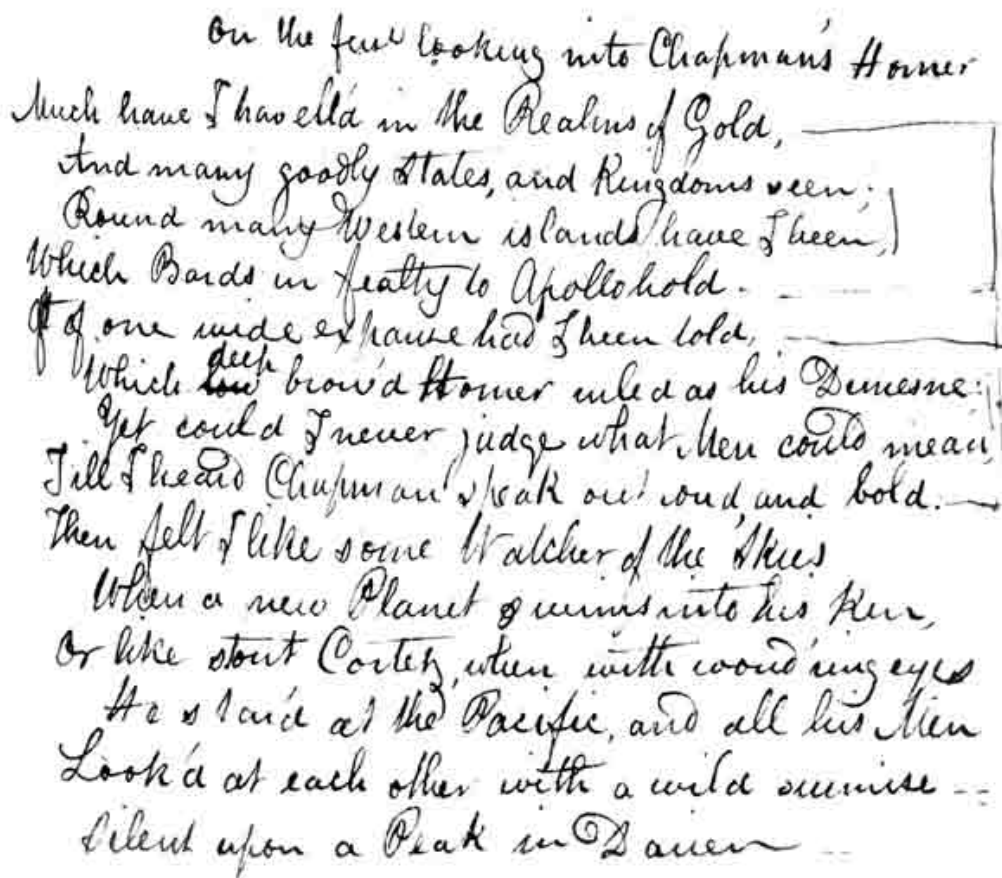 On the first looking into Chapman's Homer
Much have I travell'd in the Realms of Gold,
And many goodly States, and Kingdoms seen;
Round many Western islands have I been,
Which Bards in fealty to Apollo hold.
Oft of one wide expanse had I been told,
deep
Which low brow'd Homer ruled as his Demesne:
Yet could I never judge what Men could mean,
Till I heard Chapman speak out loud, and bold.
Then felt I like some Watcher of the Skies
When a new Planet swims into his Ken,
Or like stout Cortez, when with wond'ring eyes
He star'd at the Pacific, and all his Men
Look'd at each other with a wild surmise --
Silent upon a Peak in Darien